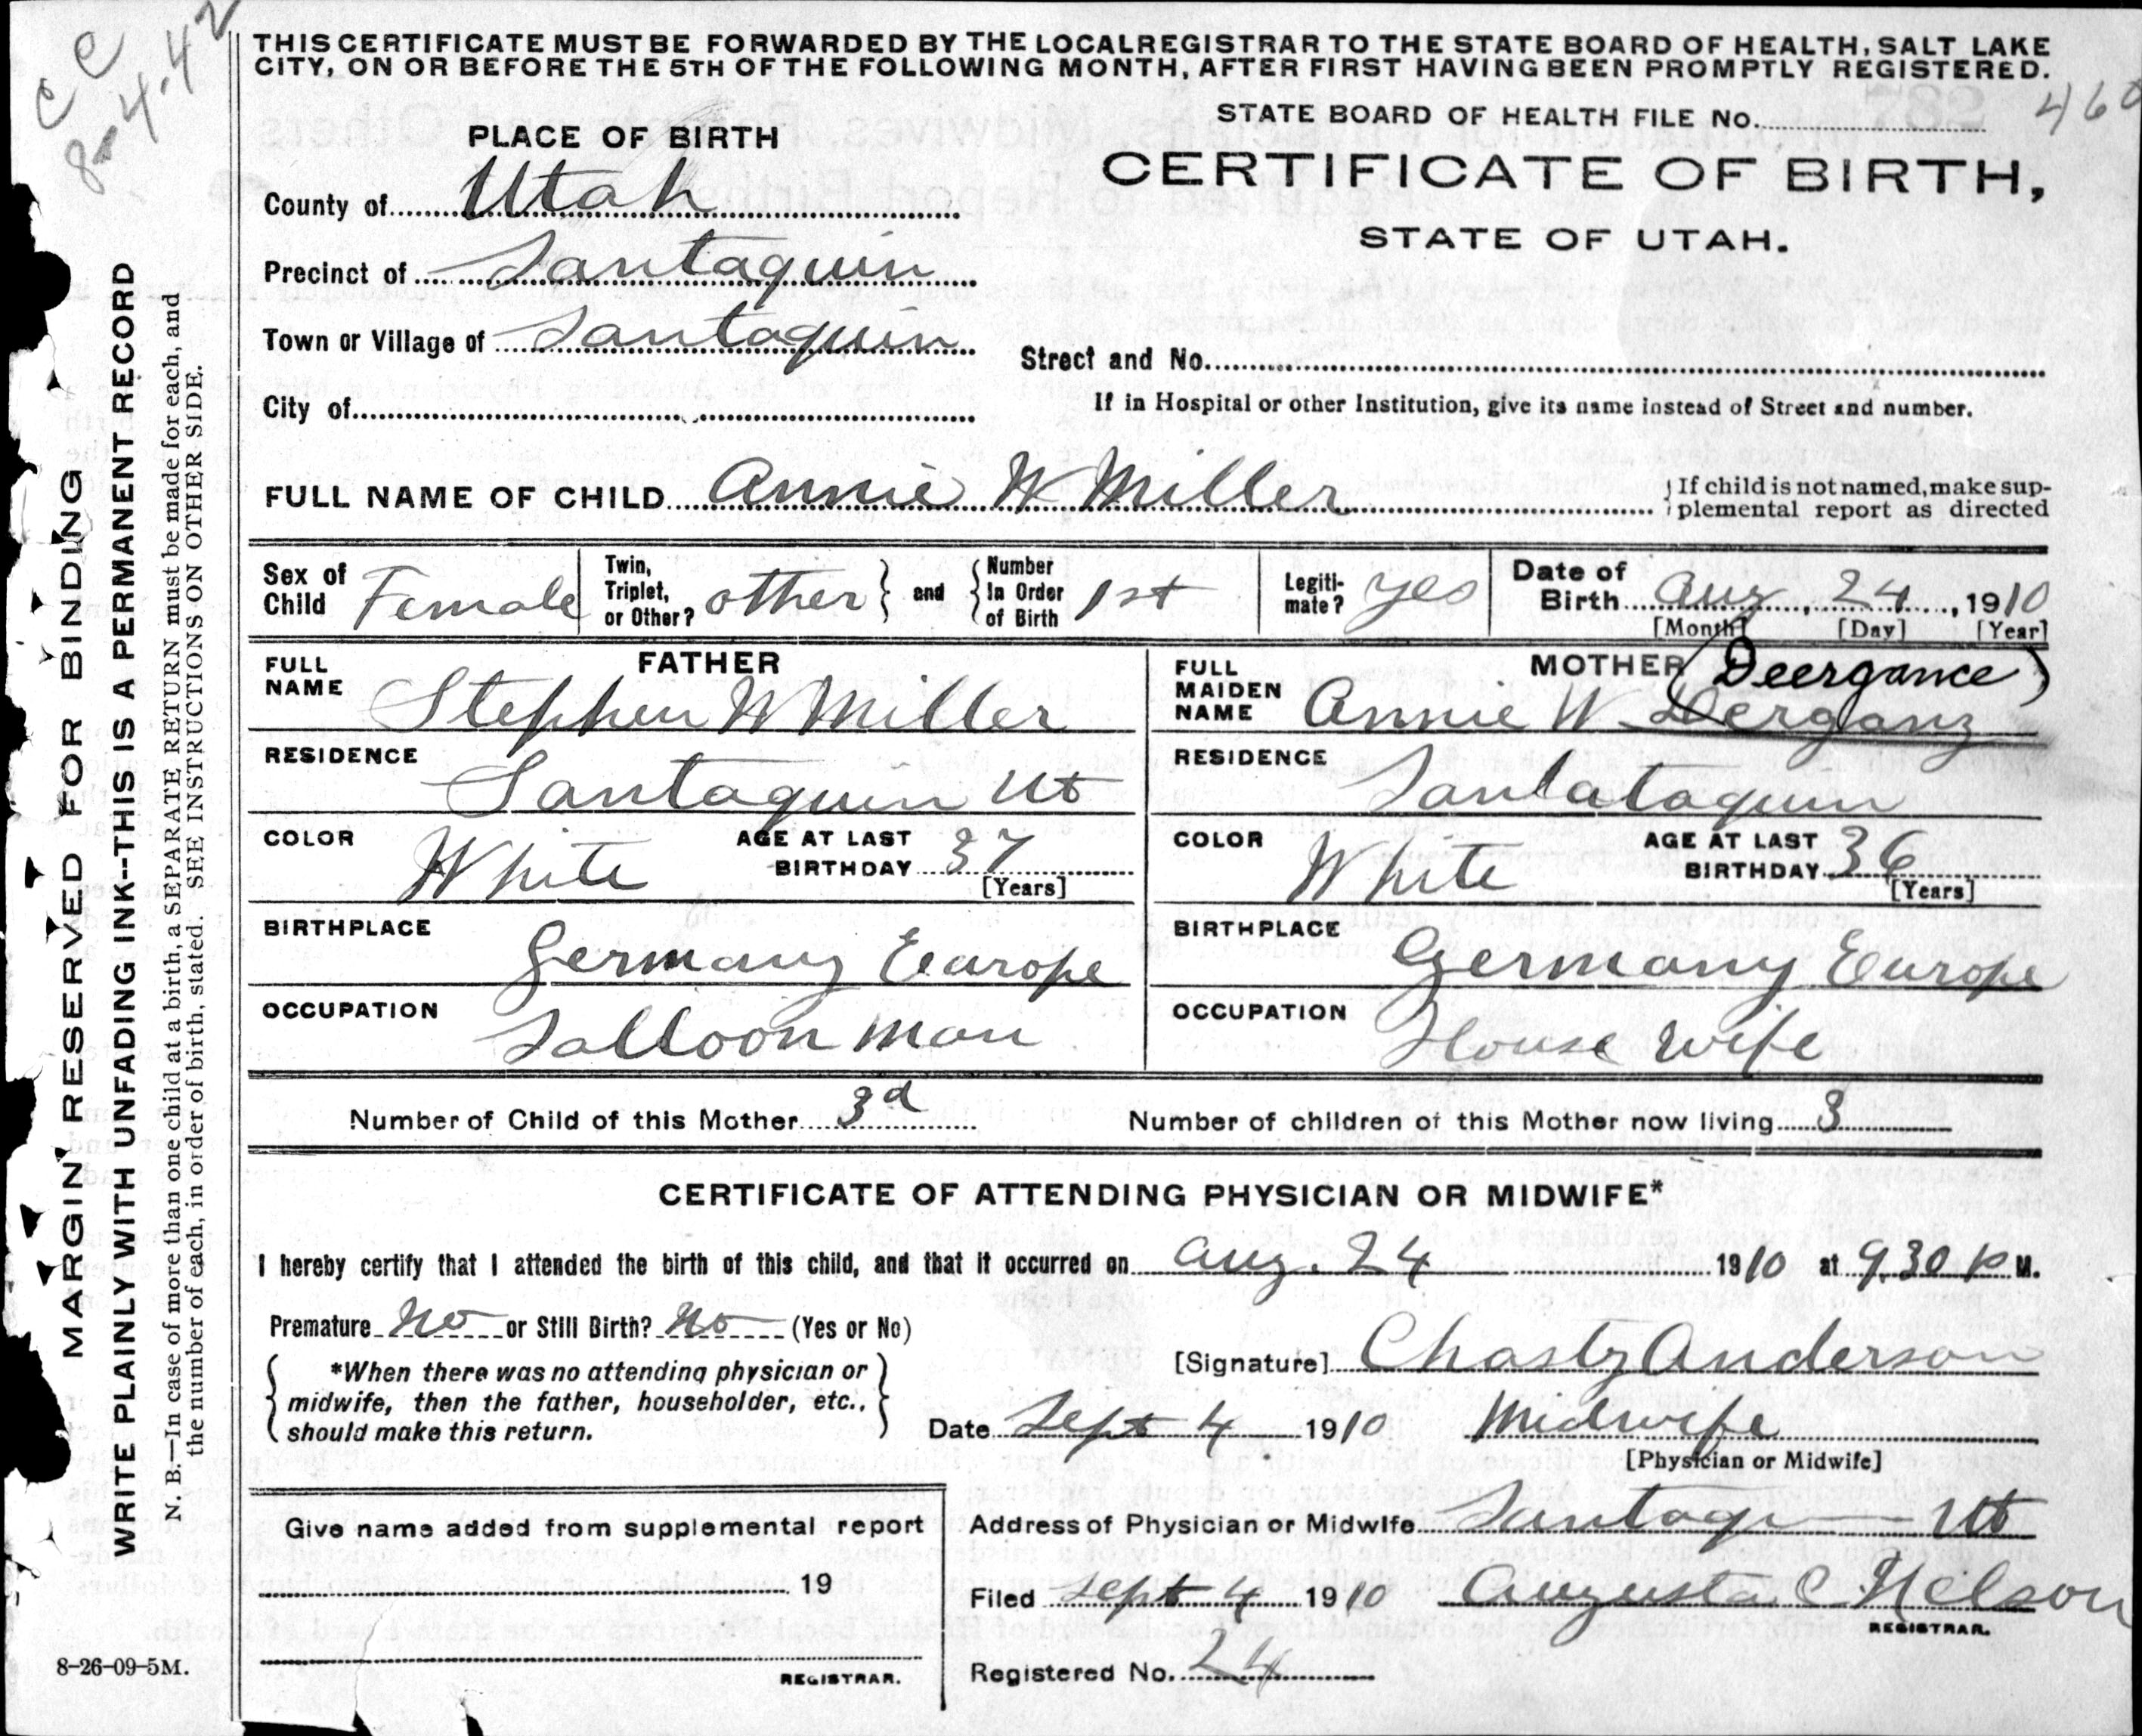 CC
8-4-42
THIS CERTIFICATE MUST BE FORWARDED BY THE LOCAL REGISTRAR TO THE STATE BOARD OF HEALTH, SALT LAKE
CITY, ON OR BEFORE THE 5TH OF THE FOLLOWING MONTH, AFTER FIRST HAVING BEEN PROMPTLY REGISTERED.
STATE BOARD OF HEALTH FILE No. 460
CERTIFICATE OF BIRTH,
STATE OF UTAH.
PLACE OF BIRTH
County of Utah
Precinct of Santaquin
Town or Village of Santaquin
Street and No.
City of
If in Hospital or other Institution, give its name instead of Street and number.
FULL NAME OF CHILD Annie W Miller
If child is not named, make sup-
plemental report as directed
Sex of Child Female
Twin, Triplet, or Other? other and Number In Order of Birth 1st
Legiti-mate? yes
Date of Birth Aug, 24, 1910
[Month] [Day] [Year]
FATHER
FULL NAME Stephen W Miller
RESIDENCE Santaquin Ut
COLOR White AGE AT LAST BIRTHDAY 37
[Years]
BIRTHPLACE Germany Europe
OCCUPATION Salloon man
MOTHER (Deergance)
FULL MAIDEN NAME Annie W Derganz
RESIDENCE Santataquin
COLOR White AGE AT LAST BIRTHDAY 36
[Years]
BIRTHPLACE Germany Europe
OCCUPATION House wife
Number of Child of this Mother 3d Number of children of this Mother now living 3
CERTIFICATE OF ATTENDING PHYSICIAN OR MIDWIFE*
I hereby certify that I attended the birth of this child, and that it occurred on Aug. 24 1910 at 9,30 P M.
Premature No or Still Birth? No (Yes or No)
*When there was no attending physician or
midwife, then the father, householder, etc.,
should make this return.
[Signature] Chasty Anderson
Date Sept 4 1910 Midwife
[Physician or Midwife]
Give name added from supplemental report
19
REGISTRAR.
Address of Physician or Midwife Santaq Ut
Filed Sept 4 1910 Augusta C. Nelson
REGISTRAR.
Registered No. 24
8-26-09-5M.
MARGIN RESERVED FOR BINDING
WRITE PLAINLY WITH UNFADING INK--THIS IS A PERMANENT RECORD
N. B.—In case of more than one child at a birth, a SEPARATE RETURN must be made for each, and
the number of each, in order of birth, stated. SEE INSTRUCTIONS ON OTHER SIDE.